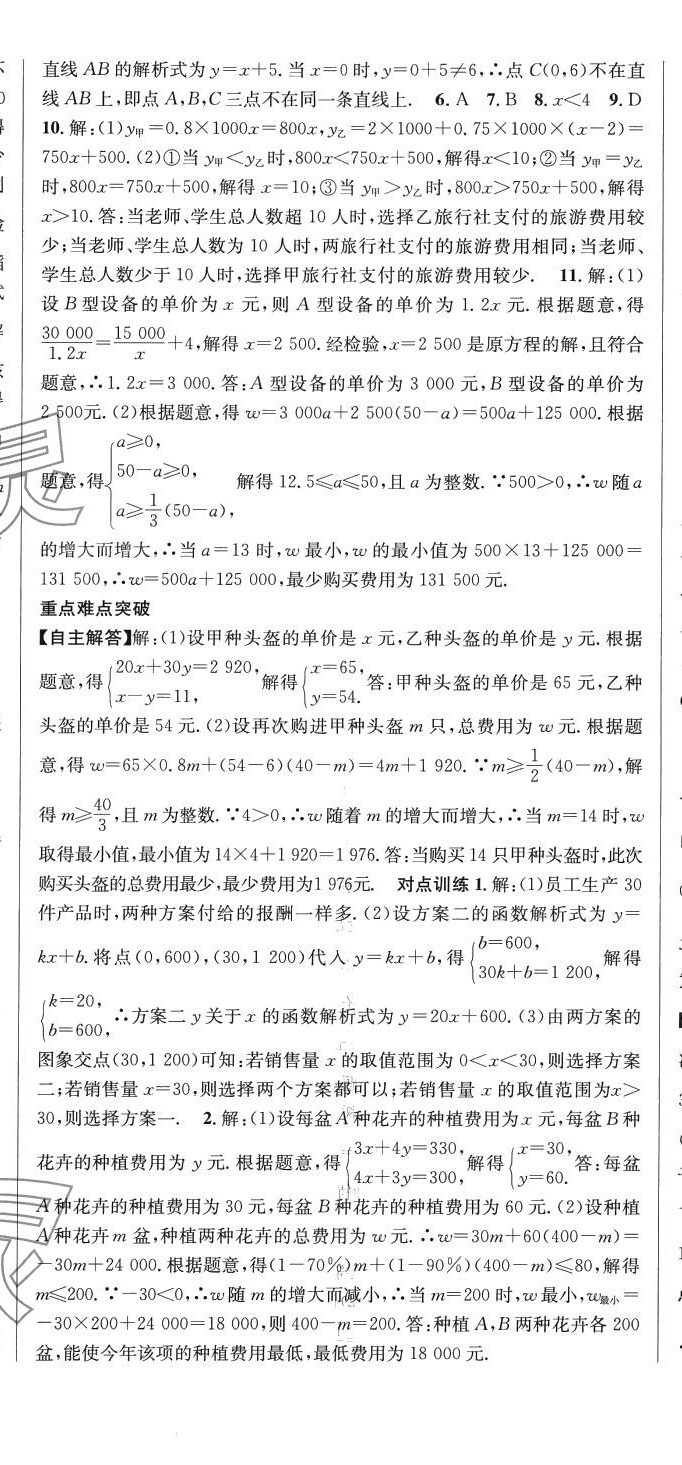 直线 AB 的解析式为 y=x+5. 当 x=0 时,y=0+5≠6,∴点 C(0,6)不在直
线 AB 上,即点 A,B,C 三点不在同一条直线上. 6. A 7. B 8. x<4 9. D
10. 解:(1)y甲=0.8×1000x=800x,y乙=2×1000+0.75×1000×(x-2)=
750x+500. (2)①当 y甲<y乙时,800x<750x+500,解得x<10;②当 y甲=y乙
时,800x=750x+500,解得 x=10;③当 y甲>y乙时,800x>750x+500,解得
x>10. 答:当老师、学生总人数超 10 人时,选择乙旅行社支付的旅游费用较
少;当老师、学生总人数为 10 人时,两旅行社支付的旅游费用相同;当老师、
学生总人数少于 10 人时,选择甲旅行社支付的旅游费用较少. 11. 解:(1)
设 B 型设备的单价为 x 元,则 A 型设备的单价为 1.2x 元. 根据题意,得
30 000/1.2x=15 000/x+4,解得 x=2 500. 经检验,x=2 500 是原方程的解,且符合
题意,∴1.2x=3 000. 答:A 型设备的单价为 3 000 元,B 型设备的单价为
2 500元. (2)根据题意,得 w=3 000a+2 500(50-a)=500a+125 000. 根据
题意,得{a≥0, 50-a≥0, a≥1/3(50-a), 解得 12.5≤a≤50,且 a 为整数. ∵500>0,∴w 随 a
的增大而增大,∴当 a=13 时,w 最小,w 的最小值为 500×13+125 000=
131 500,∴w=500a+125 000,最少购买费用为 131 500 元.
重点难点突破
【自主解答】解:(1)设甲种头盔的单价是 x 元,乙种头盔的单价是 y 元. 根据
题意,得{20x+30y=2 920, x-y=11, 解得{x=65, y=54. 答:甲种头盔的单价是 65 元,乙种
头盔的单价是 54 元. (2)设再次购进甲种头盔 m 只,总费用为 w 元. 根据题
意,得 w=65×0.8m+(54-6)(40-m)=4m+1 920. ∵m≥1/2(40-m),解
得 m≥40/3,且 m 为整数. ∵4>0,∴w 随着 m 的增大而增大,∴当 m=14 时,w
取得最小值,最小值为 14×4+1 920=1 976. 答:当购买 14 只甲种头盔时,此次
购买头盔的总费用最少,最少费用为1 976元. 对点训练 1. 解:(1)员工生产 30
件产品时,两种方案付给的报酬一样多. (2)设方案二的函数解析式为 y=
kx+b. 将点(0,600),(30,1 200)代入 y=kx+b,得{b=600, 30k+b=1 200, 解得
{k=20, b=600, ∴方案二 y 关于 x 的函数解析式为 y=20x+600. (3)由两方案的
图象交点(30,1 200)可知:若销售量 x 的取值范围为 0<x<30,则选择方案
二;若销售量 x=30,则选择两个方案都可以;若销售量 x 的取值范围为x>
30,则选择方案一. 2. 解:(1)设每盆 A 种花卉的种植费用为 x 元,每盆 B 种
花卉的种植费用为 y 元. 根据题意,得{3x+4y=330, 4x+3y=300, 解得{x=30, y=60. 答:每盆
A 种花卉的种植费用为 30 元,每盆 B 种花卉的种植费用为 60 元. (2)设种植
A 种花卉 m 盆,种植两种花卉的总费用为 w 元. ∴w=30m+60(400-m)=
-30m+24 000. 根据题意,得(1-70%)m+(1-90%)(400-m)≤80,解得
m≤200. ∵-30<0,∴w 随 m 的增大而减小,∴当 m=200 时,w 最小,w最小=
-30×200+24 000=18 000,则 400-m=200. 答:种植 A,B 两种花卉各 200
盆,能使今年该项的种植费用最低,最低费用为 18 000 元.